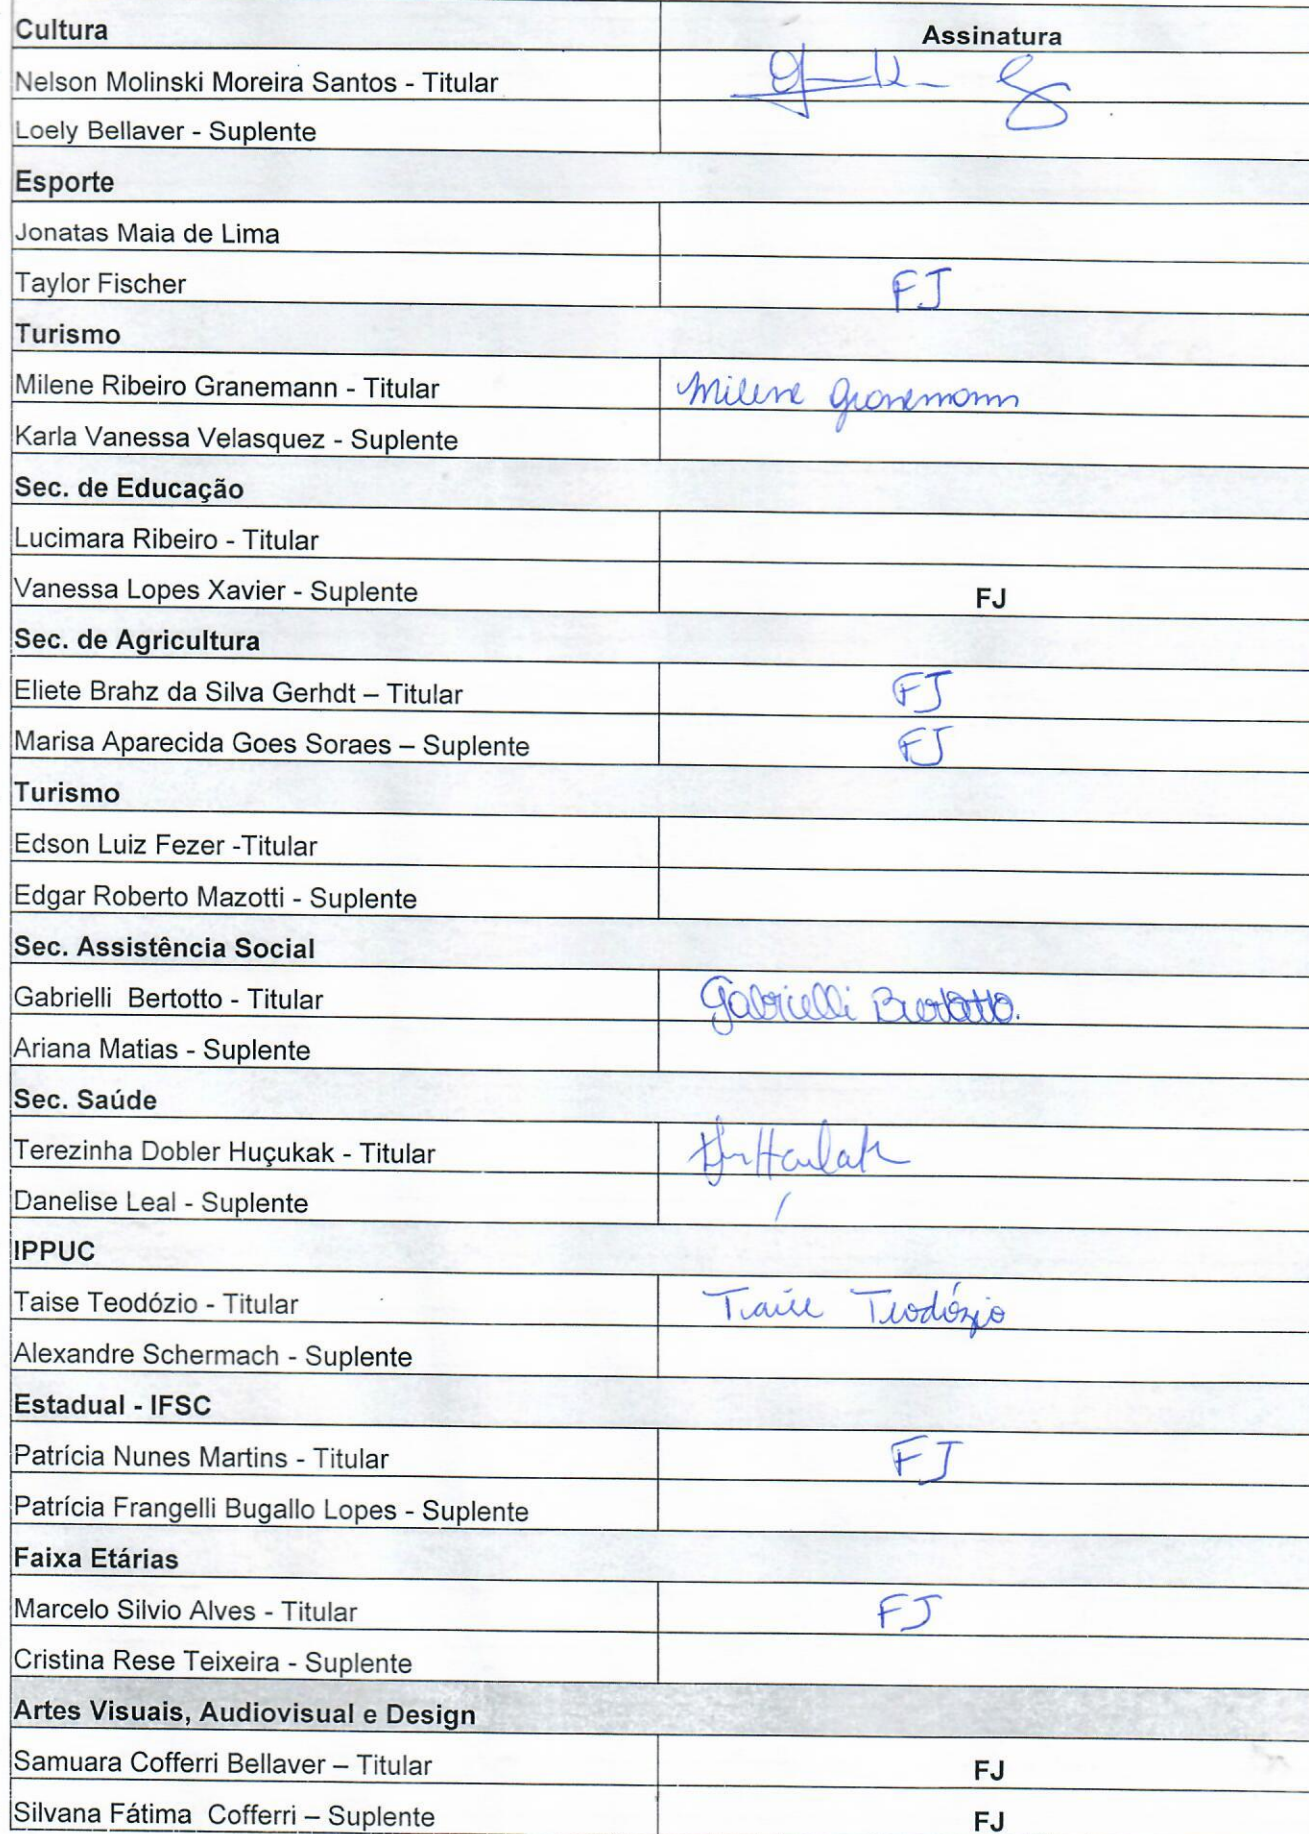 Cultura Assinatura
Nelson Molinski Moreira Santos - Titular
Loely Bellaver - Suplente
Esporte
Jonatas Maia de Lima
Taylor Fischer FJ
Turismo
Milene Ribeiro Granemann - Titular Milene Granemann
Karla Vanessa Velasquez - Suplente
Sec. de Educação
Lucimara Ribeiro - Titular
Vanessa Lopes Xavier - Suplente FJ
Sec. de Agricultura
Eliete Brahz da Silva Gerhdt – Titular FJ
Marisa Aparecida Goes Soraes – Suplente FJ
Turismo
Edson Luiz Fezer -Titular
Edgar Roberto Mazotti - Suplente
Sec. Assistência Social
Gabrielli Bertotto - Titular Gabrielli Bertotto.
Ariana Matias - Suplente
Sec. Saúde
Terezinha Dobler Huçukak - Titular
Danelise Leal - Suplente
IPPUC
Taise Teodózio - Titular Taise Teodózio
Alexandre Schermach - Suplente
Estadual - IFSC
Patrícia Nunes Martins - Titular FJ
Patrícia Frangelli Bugallo Lopes - Suplente
Faixa Etárias
Marcelo Silvio Alves - Titular FJ
Cristina Rese Teixeira - Suplente
Artes Visuais, Audiovisual e Design
Samuara Cofferri Bellaver – Titular FJ
Silvana Fátima Cofferri – Suplente FJ